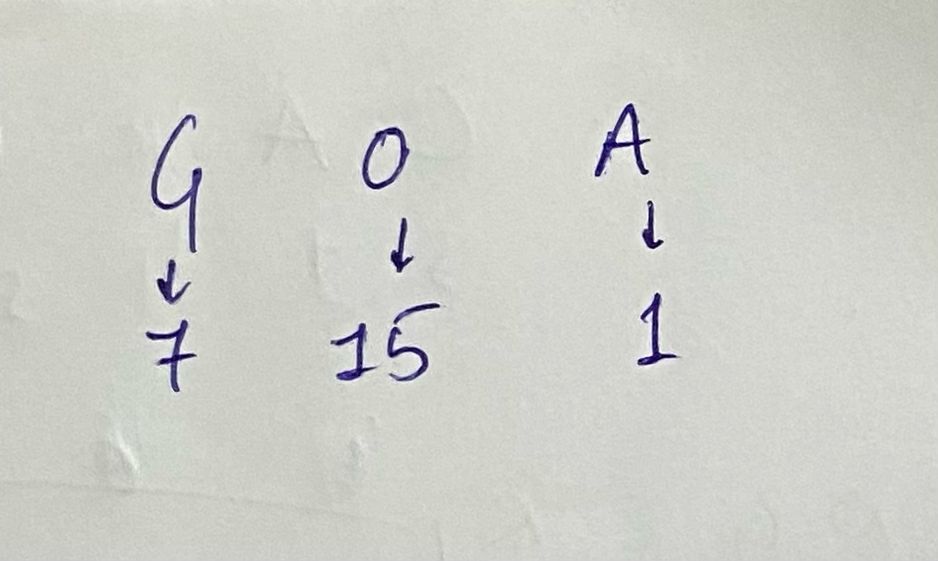 G O A
↓ ↓ ↓
7 15 1